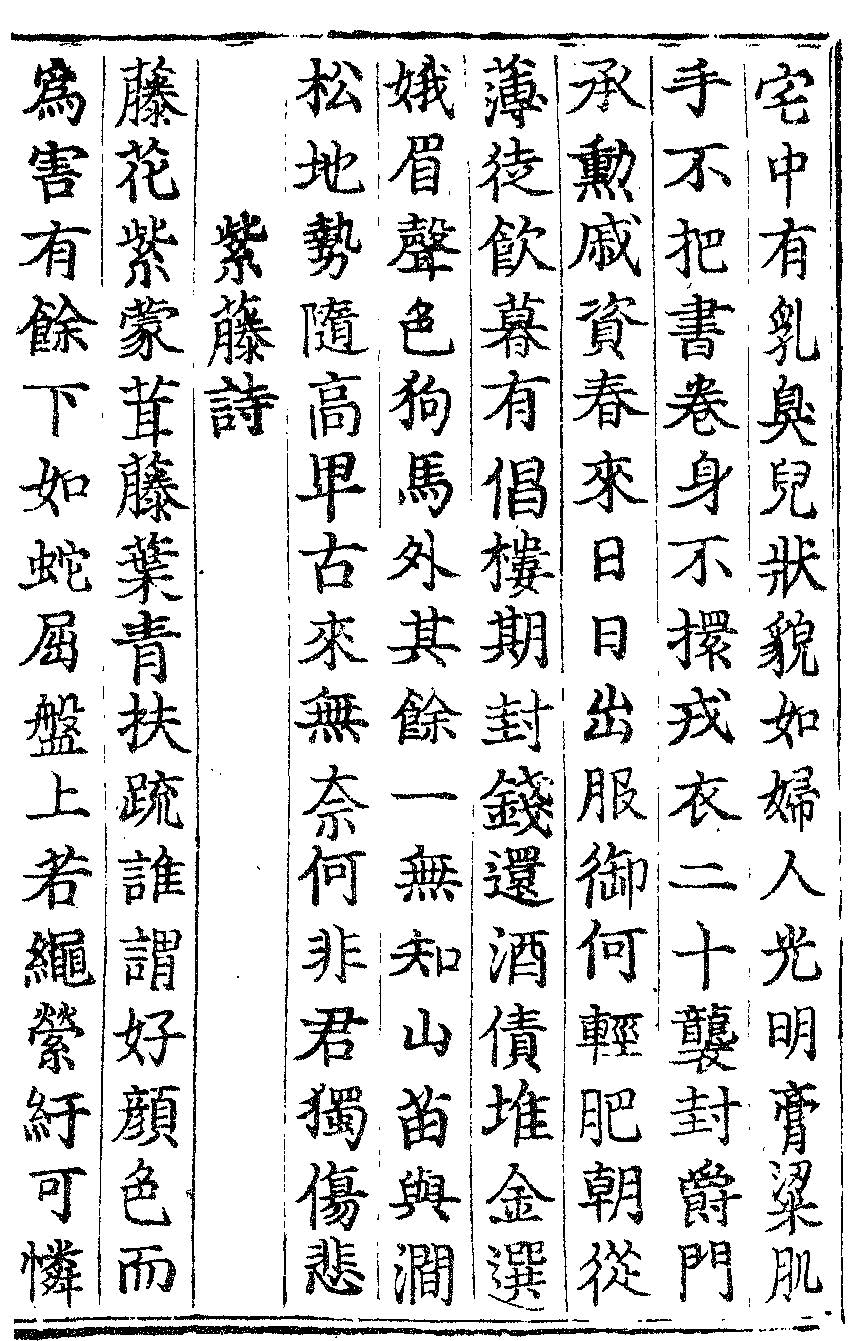 宅中有乳臭兒狀貌如婦人光明膏粱肌
手不把書卷身不擐戎衣二十襲封爵門
承勲戚資春來日日出服御何輕肥朝從
薄徒飲暮有倡樓期封錢還酒債堆金選
娥眉聲色狗馬外其餘一無知山苗與澗
松地勢隨髙卑古來無奈何非君獨傷悲
紫藤詩
藤花紫蒙茸藤葉青扶疏誰謂好顔色而
為害有餘下如蛇屈盤上若繩縈紆可憐